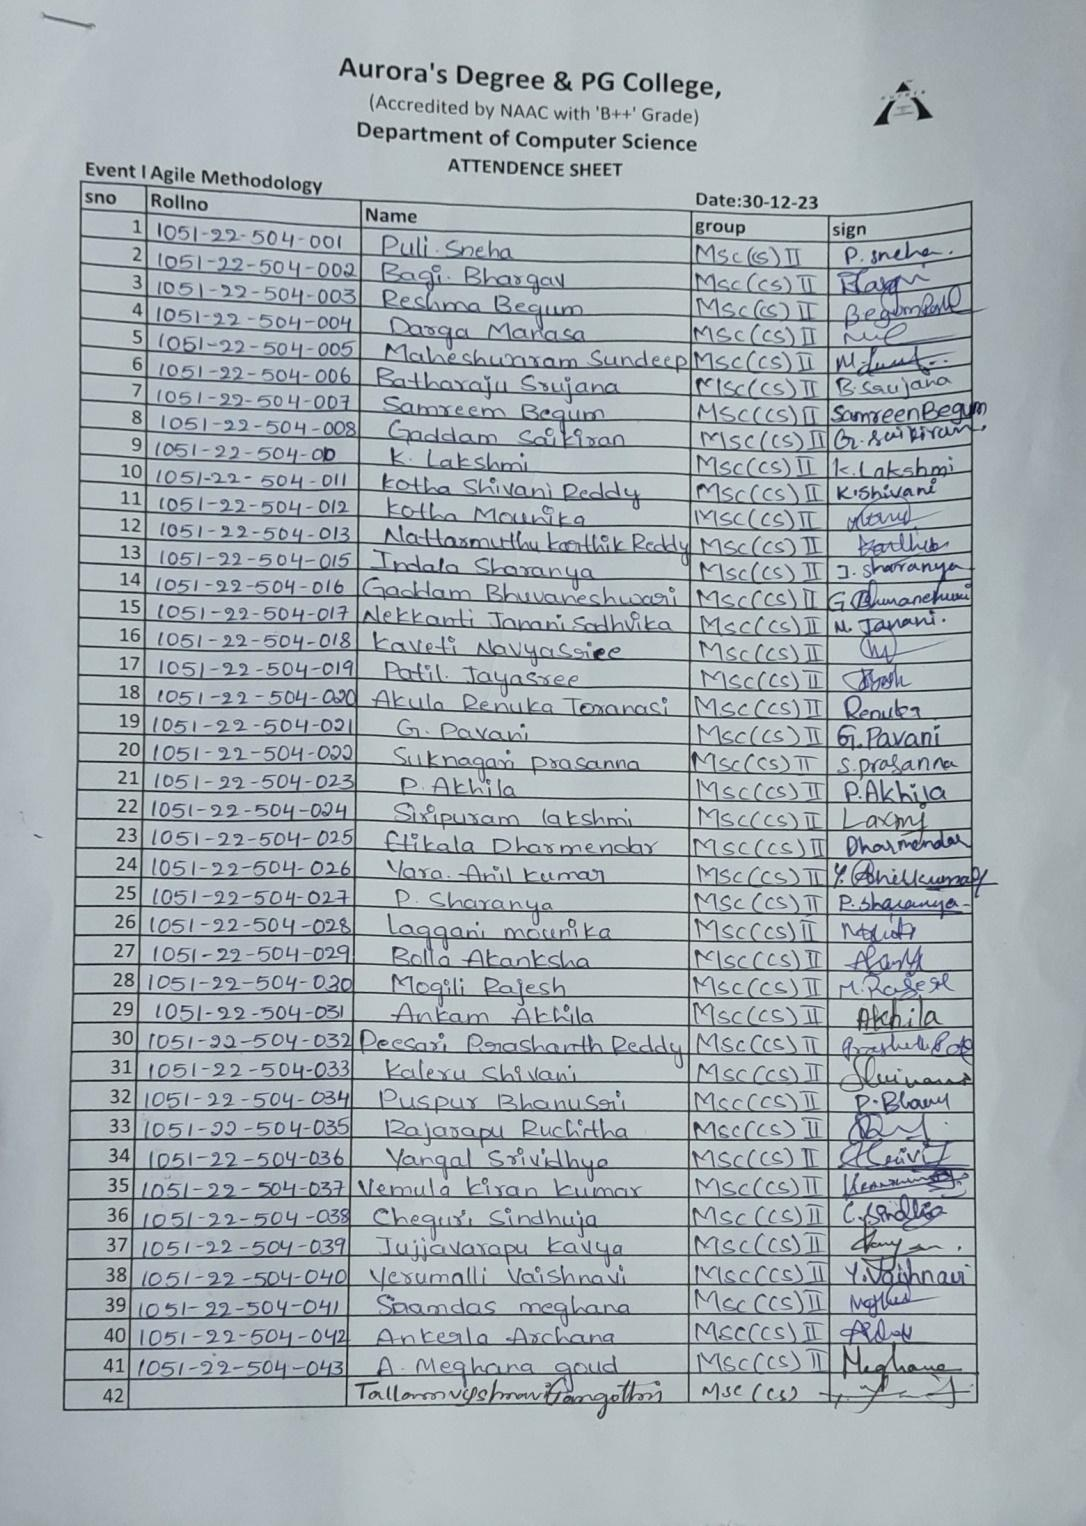 Aurora's Degree & PG College,
(Accredited by NAAC with 'B++' Grade)
Department of Computer Science
ATTENDENCE SHEET
Event I Agile Methodology
Date:30-12-23
sno Rollno Name group sign
1 1051-22-504-001 Puli. Sneha MSc(CS) II P. Sneha.
2 1051-22-504-002 Bagi. Bhargav MSc(CS) II
3 1051-22-504-003 Reshma Begum MSc(CS) II
4 1051-22-504-004 Darga Manasa MSc(CS) II
5 1051-22-504-005 Maheshwaram Sundeep MSc(CS) II
6 1051-22-504-006 Batharaju Srujana MSc(CS) II B. Srujana
7 1051-22-504-007 Samreem Begum MSc(CS) II Samreen Begum
8 1051-22-504-008 Gaddam Saikiran MSc(CS) II G. Saikiran
9 1051-22-504-010 K. Lakshmi MSc(CS) II K. Lakshmi
10 1051-22-504-011 Kotha Shivani Reddy MSc(CS) II K. Shivani
11 1051-22-504-012 Kotha Mounika MSc(CS) II
12 1051-22-504-013 Nattarmuthu Karthik Reddy MSc(CS) II Karthik
13 1051-22-504-015 Indala Sharanya MSc(CS) II I. Sharanya
14 1051-22-504-016 Gaddam Bhuvaneshwari MSc(CS) II
15 1051-22-504-017 Nekkanti Janani Sadhvika MSc(CS) II N. Janani.
16 1051-22-504-018 Kaveti Navyasriee MSc(CS) II
17 1051-22-504-019 Patil. Jayasree MSc(CS) II
18 1051-22-504-020 Akula Renuka Toranasi MSc(CS) II Renuka
19 1051-22-504-021 G. Pavani MSc(CS) II G. Pavani
20 1051-22-504-022 Suknagari Prasanna MSc(CS) II S. Prasanna
21 1051-22-504-023 P. Akhila MSc(CS) II P. Akhila
22 1051-22-504-024 Siripuram lakshmi MSc(CS) II Laxmi
23 1051-22-504-025 Etikala Dharmendar MSc(CS) II Dharmendar
24 1051-22-504-026 Yara. Anil kumar MSc(CS) II Y. Anilkumar
25 1051-22-504-027 P. Sharanya MSc(CS) II P. Sharanya
26 1051-22-504-028 Laggani mounika MSc(CS) II
27 1051-22-504-029 Bolla Akanksha MSc(CS) II
28 1051-22-504-030 Mogili Rajesh MSc(CS) II M. Rajesh
29 1051-22-504-031 Ankam Akhila MSc(CS) II Akhila
30 1051-22-504-032 Peesari Prashanth Reddy MSc(CS) II
31 1051-22-504-033 Kaleru Shivani MSc(CS) II
32 1051-22-504-034 Puspur Bhanusri MSc(CS) II
33 1051-22-504-035 Rajarapu Ruchitha MSc(CS) II
34 1051-22-504-036 Yangal Srividhya MSc(CS) II
35 1051-22-504-037 Vemula kiran kumar MSc(CS) II
36 1051-22-504-038 Cheguri Sindhuja MSc(CS) II
37 1051-22-504-039 Jujjavarapu Kavya MSc(CS) II
38 1051-22-504-040 Yerumalli Vaishnavi MSc(CS) II Y. Vaishnavi
39 1051-22-504-041 Saamdas meghana MSc(CS) II
40 1051-22-504-042 Ankerla Archana MSc(CS) II
41 1051-22-504-043 A. Meghana goud MSc(CS) II Meghana
42 MSc (CS)